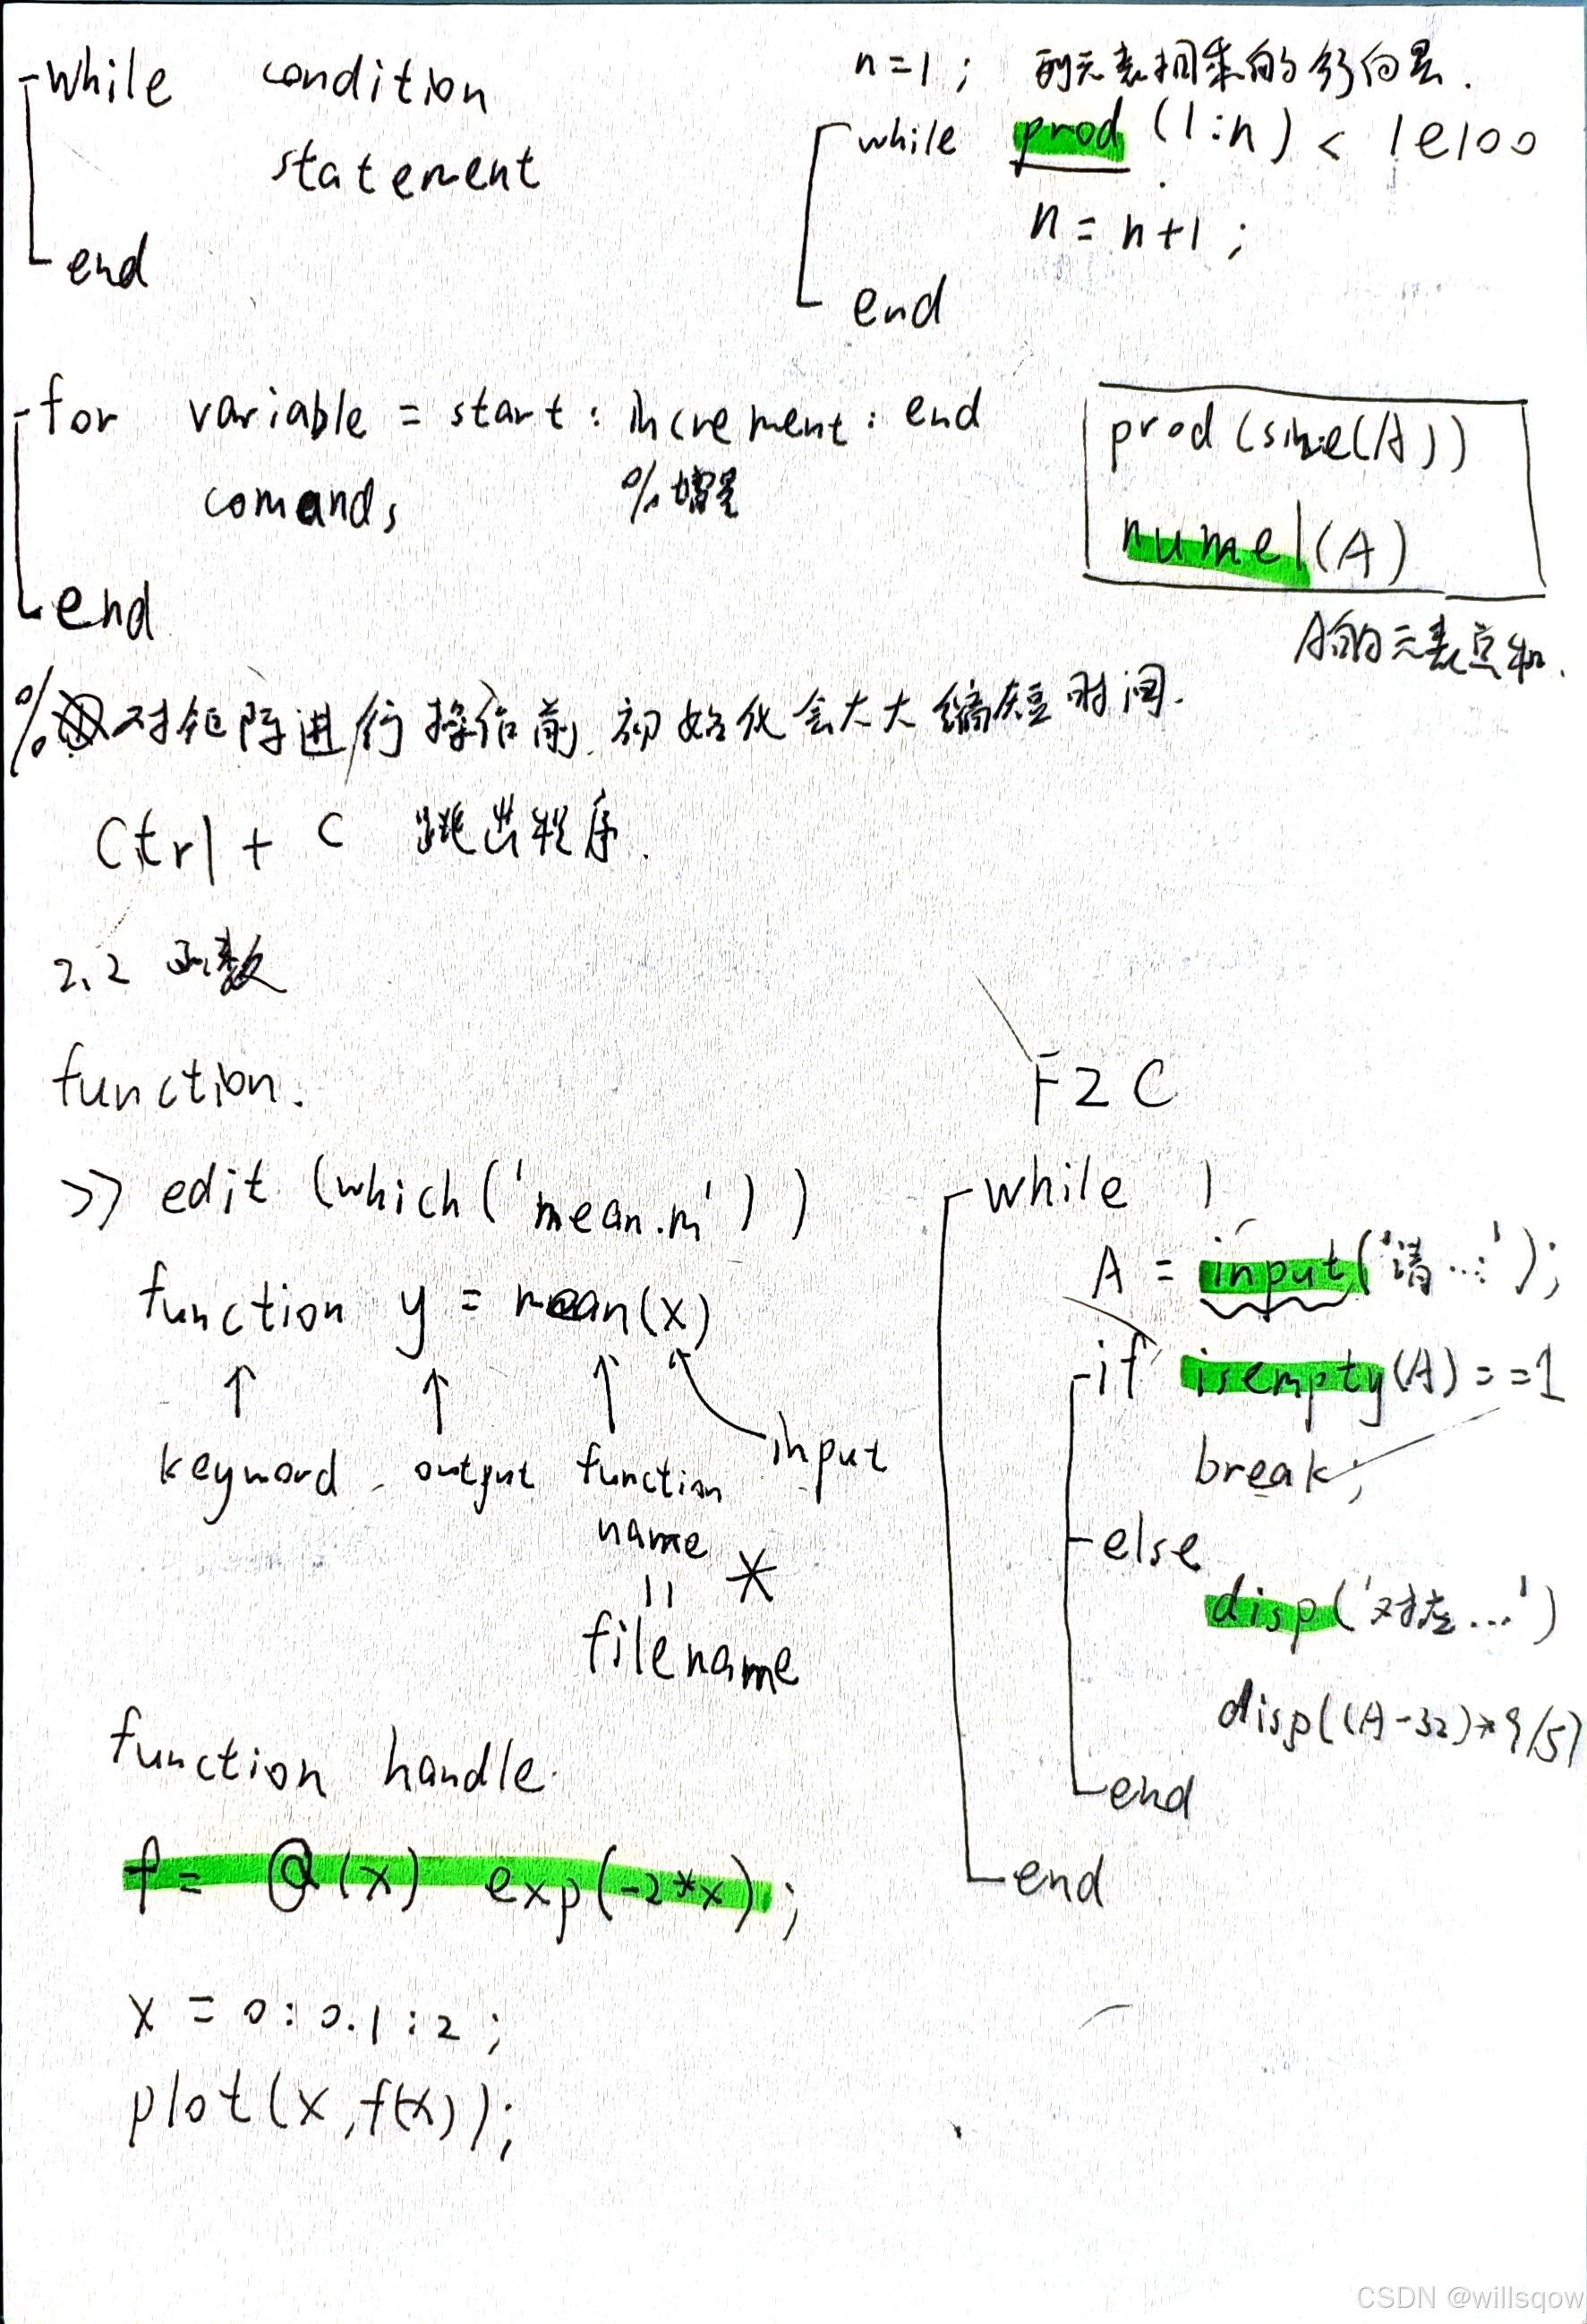 while condition
statement
end
n=1; 列元素相乘的行向量.
while prod (1:n) < 1e100
n = n+1 ;
end
for variable = start : increment : end
%增量
comands
end
prod (size(A))
numel(A)
A的元素总和.
% 对矩阵进行操作前, 初始化会大大缩短时间.
Ctrl + C 跳出程序.
2.2 函数
function.
>> edit (which('mean.m'))
function y = mean(x)
keyword output function name input
=
filename *
function handle.
f = @(x) exp(-2*x);
x = 0:0.1:2;
plot(x,f(x));
F2C
while 1
A = input('请...:');
if isempty(A)==1
break;
else
disp('对应...')
disp((A-32)*9/5)
end
end
CSDN @willsqow